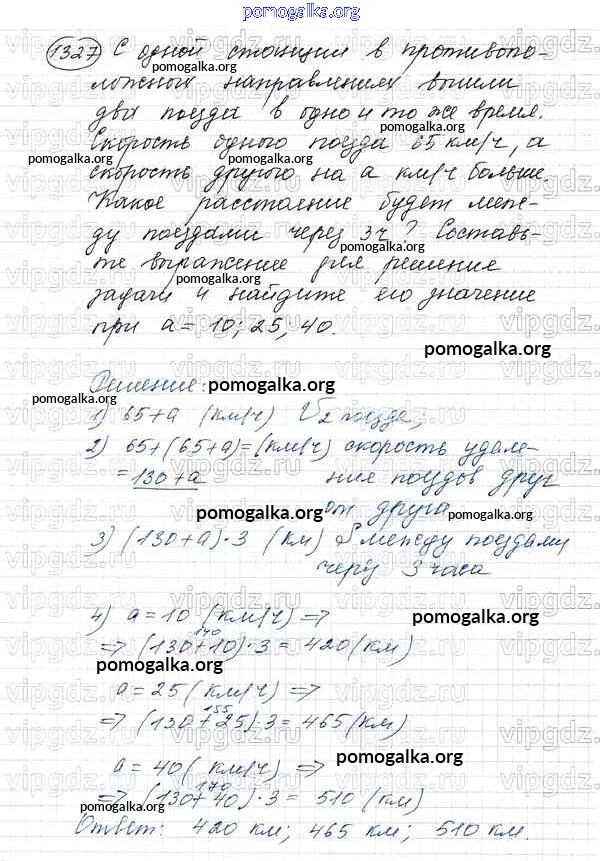 pomogalka.org
1327 С одной станции в противопо-
ложных направлениях вышли
два поезда в одно и то же время.
pomogalka.org
Скорость одного поезда 65 км/ч, а
pomogalka.org
скорость другого на а км/ч больше.
pomogalka.org
Какое расстояние будет меж-
ду поездами через 3ч? Составь-
pomogalka.org
те выражение для решение
pomogalka.org
задачи и найдите его значение
при а = 10; 25; 40.
pomogalka.org
Решение:
pomogalka.org
1) 65+а (км/ч) V2 поезда,
2) 65+(65+а)=(км/ч) скорость удале-
= 130+а ния поездов друг
от друга
pomogalka.org
pomogalka.org
3) (130+а)·3 (км) S между поездами
через 3 часа
4) а = 10 (км/ч) ⇒
pomogalka.org
140
⇒ (130+10)·3 = 420 (км)
pomogalka.org
а = 25 (км/ч) ⇒
155
⇒ (130+25)·3 = 465 (км)
pomogalka.org
а = 40 (км/ч) ⇒
170
⇒ (130+40)·3 = 510 (км)
pomogalka.org
Ответ: 420 км; 465 км; 510 км.